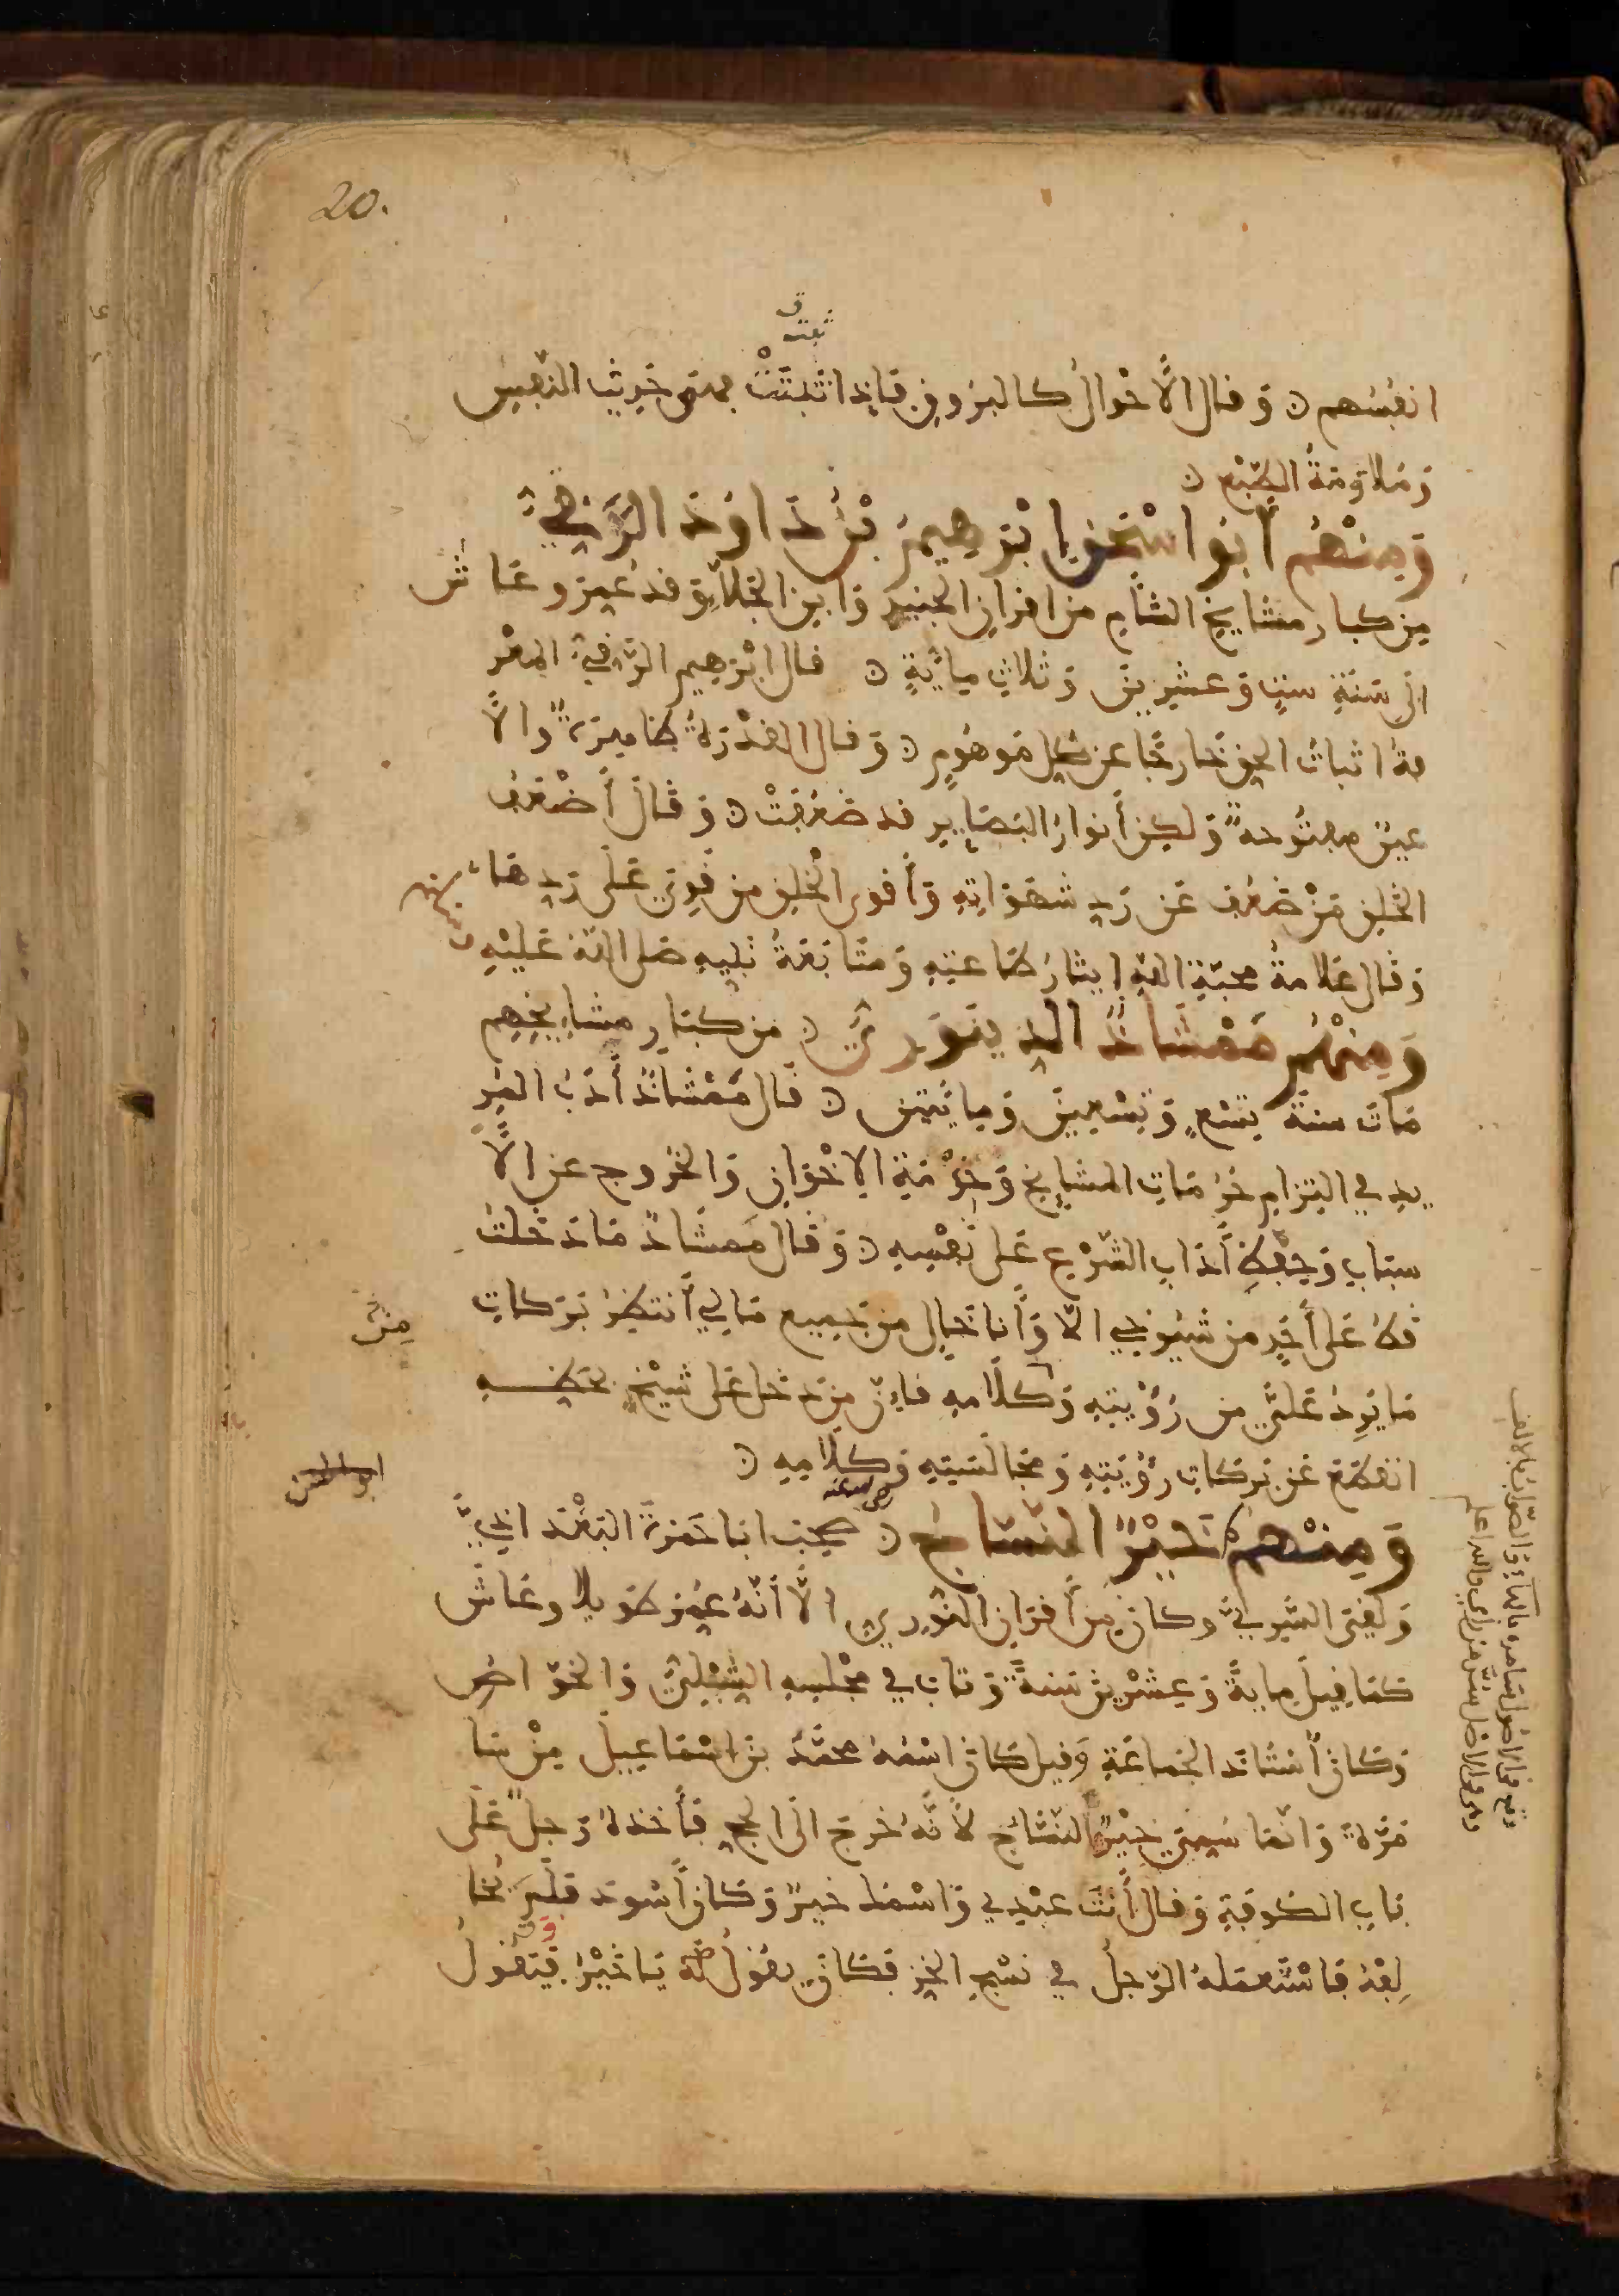 20.
انفسهم ۞ وقال الأحوال كالبروق فإذا ثبتت فهو حديث النفس
وملاومة الطبع ۞
ومنهم أبو اسحق إبرهيم بن داود الرقي
من كبار مشايخ الشام من اقران الجنيد وابن الجلاء وقد عمر وعاش
الى سنة ست وعشرين وثلاث مائة ۞ قال ابرهيم الرقي المعر
فة اثبات الحق خارجا عن كل موهوم ۞ وقال القدرة ظاهرة والأ
عين مفتوحة ولكن أنوار البصاير قد ضعفت ۞ وقال أضعف
الخلق من ضعف عن رد شهواته وأقوى الخلق من قوي على ردها
وقال علامة محبة الله إيثار طاعته ومتابعة نبيه صلى الله عليه
ومنهم ممشاذ الدينوري ۞ من كبار مشايخهم
مات سنة تسع وتسعين ومائتين ۞ قال ممشاذ أدب المر
يد في التزام حرمات المشايخ وخدمة الإخوان والخروج عن الأ
سباب وحفظ أداب الشرع على نفسه ۞ وقال ممشاذ ما دخلت
قط على أحد من شيوخي الا وأنا خال من جميع مالي أنتظر بركات
ما يرد علي من رؤيته وكلامه فإن من دخل على شيخ بحظه
انقطع عن بركات رؤيته ومجالسته وكلامه ۞
ومنهم خير النساج ۞ صحب ابا حمزة البغداذي
ولقي السري وكان من أقران النوري الا أنه عمر طويلا وعاش
كما قيل مائة وعشرين سنة وتاب في مجلسه الشبلي والخواص
وكان أستاذ الجماعة وقيل كان اسمه محمد بن اسماعيل من سا
مرة وانما سمي خير النساج لأنه خرج الى الحج فأخذه رجل على
باب الكوفة وقال أنت عبدي واسمك خير وكان أسود فلم يخا
لفه فاستعمله الرجل في نسج الخز فكان يقول له يا خير فيقول